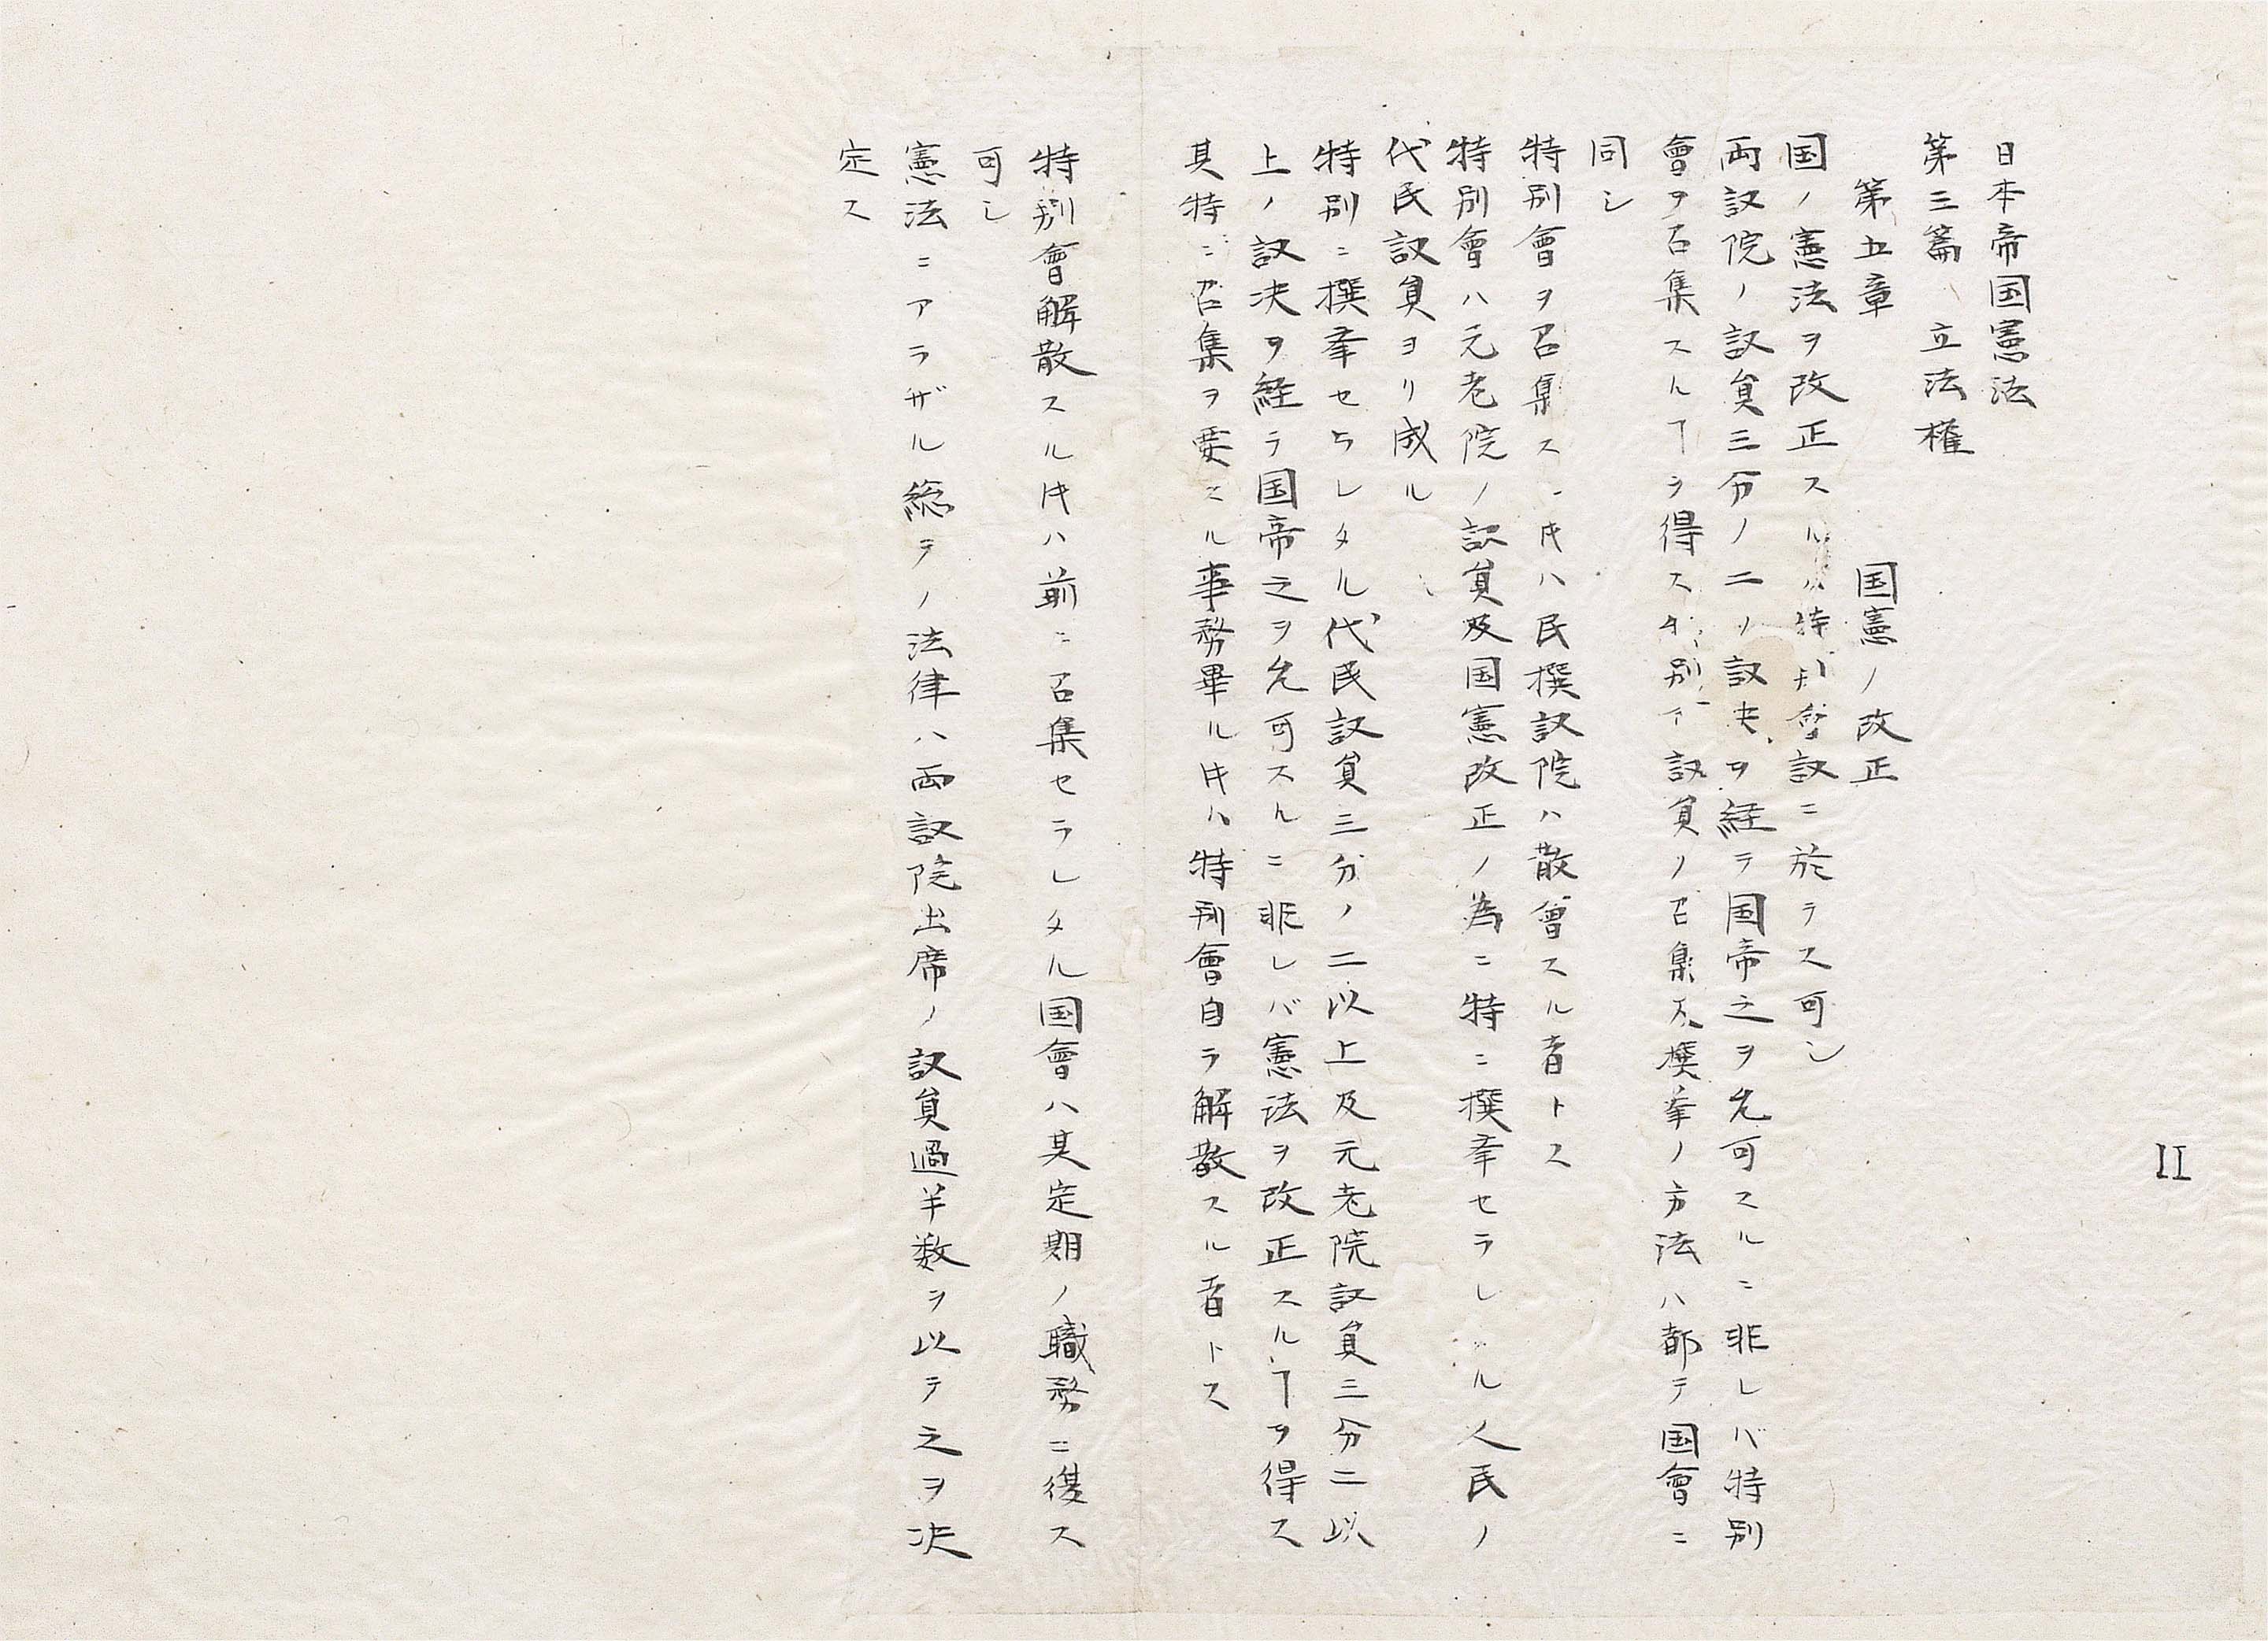 11
日本帝国憲法
第三篇 立法權
第五章 国憲ノ改正
国ノ憲法ヲ改正スルハ特別會議ニ於テス可シ
両議院ノ議員三分ノ二ノ議决ヲ経テ国帝之ヲ允可スルニ非レバ特別
會ヲ召集スルヿヲ得ス特別 議員ノ召集及撰挙ノ方法ハ都テ国會ニ
同シ
特別會ヲ召集スルトキハ民撰議院ハ散會スル者トス
特別會ハ元老院ノ議員及国憲改正ノ為ニ特ニ撰挙セラレタル人民ノ
代民議員ヨリ成ル
特別ニ撰挙セラレタル代民議員三分ノ二以上及元老院議員三分二以
上ノ議决ヲ経テ国帝之ヲ允可スルニ非レバ憲法ヲ改正スルヿヲ得ス
其特ニ召集ヲ要スル事務畢ルトキハ特別會自ラ解散スル者トス
特別會解散スルトキハ前ニ召集セラレタル国會ハ其定期ノ職務ニ復ス
可シ
憲法ニアラザル総テノ法律ハ両議院出席ノ議員過半数ヲ以テ之ヲ决
定ス